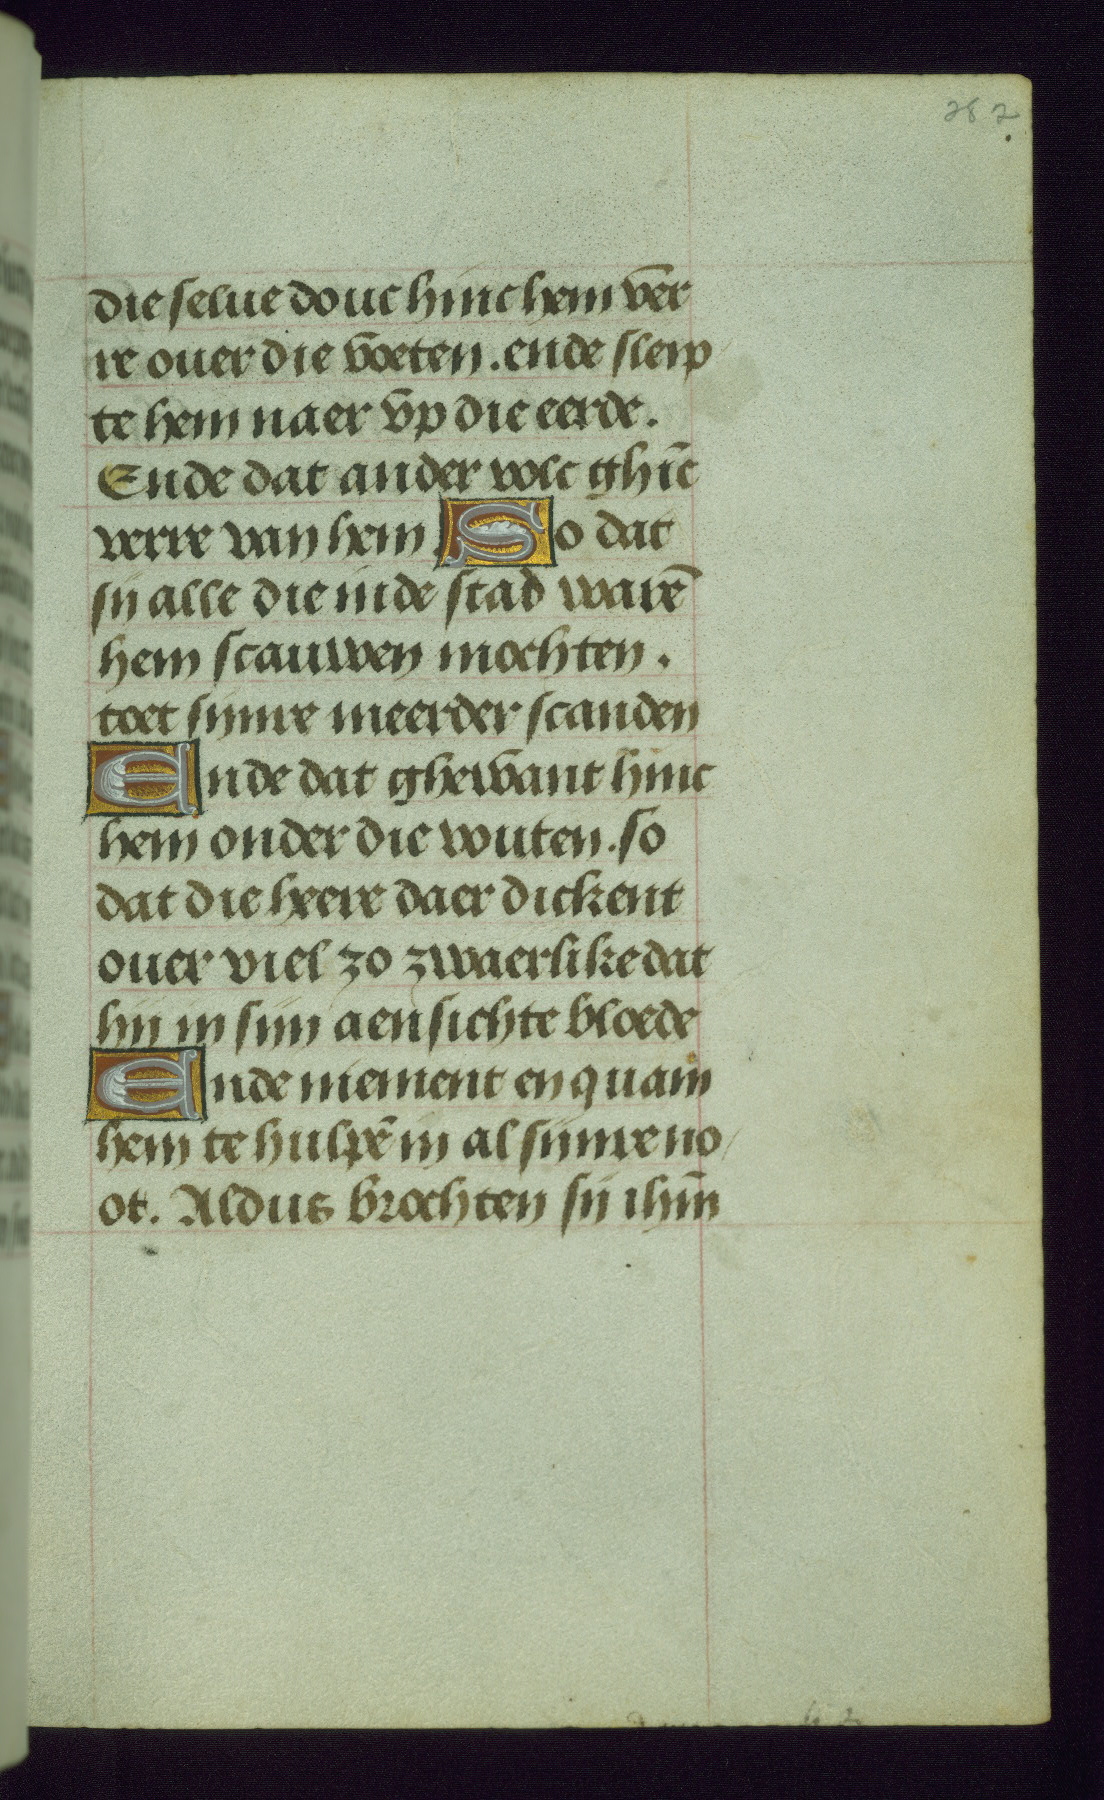 282
die selue douc hinc hem ver
re ouer die voeten. ende sleip
te hem naer vp die eerde.
Ende dat ander volc ghīc
verre van hem. So dat
sij alle die inde stad warē
hem scauwen mochten.
toet sijnre meerder scanden
Ende dat ghewant hinc
hem onder die vouten. so
dat die heere daer dickent
ouer viel zo zwaerlike dat
hij in sijn aensichte bloede
Ende niement en quam
hem te hulpē in al sijnre no
ot. Aldus brochten sij ihm̄